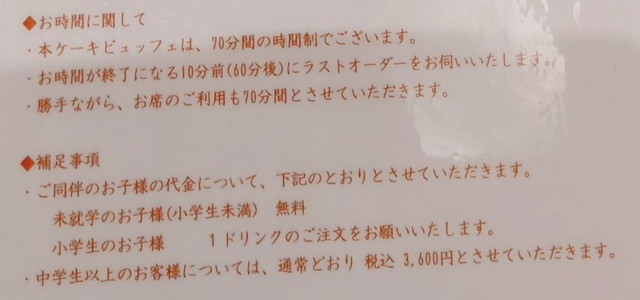 ◆お時間に関して
・本ケーキビュッフェは、70分間の時間制でございます。
・お時間が終了になる10分前(60分後)にラストオーダーをお伺いいたします。
・勝手ながら、お席のご利用も70分間とさせていただきます。
◆補足事項
・ご同伴のお子様の代金について、下記のとおりとさせていただきます。
未就学のお子様(小学生未満) 無料
小学生のお子様 1ドリンクのご注文をお願いいたします。
・中学生以上のお客様については、通常どおり 税込 3,600円とさせていただきます。